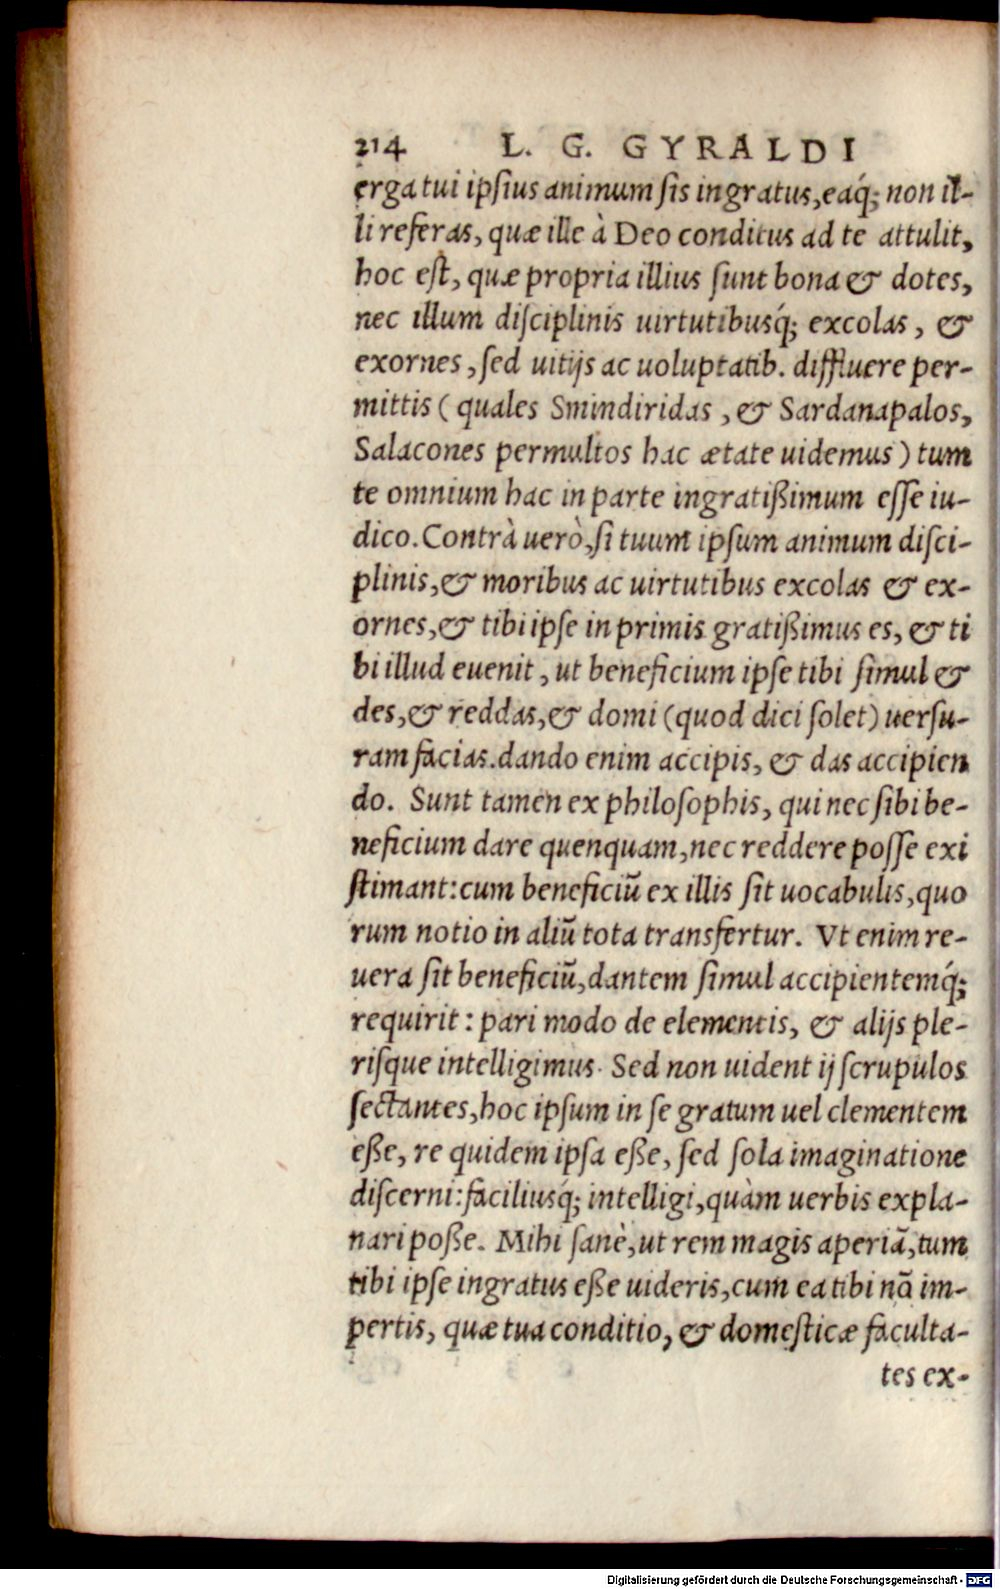 214 L. G. GYRALDI
erga tui ipsius animum sis ingratus, eaq́; non il-
li referas, quæ ille à Deo conditus ad te attulit,
hoc est, quæ propria illius sunt bona & dotes,
nec illum disciplinis uirtutibusq́; excolas, &
exornes, sed uitijs ac uoluptatib. diffluere per-
mittis (quales Smindiridas, & Sardanapalos,
Salacones permultos hac ætate uidemus) tum
te omnium hac in parte ingratißimum esse iu-
dico. Contrà uerò, si tuum ipsum animum disci-
plinis, & moribus ac uirtutibus excolas & ex-
ornes, & tibi ipse in primis gratißimus es, & ti
bi illud euenit, ut beneficium ipse tibi simul &
des, & reddas, & domi (quod dici solet) uersu-
ram facias. dando enim accipis, & das accipien
do. Sunt tamen ex philosophis, qui nec sibi be-
neficium dare quenquam, nec reddere posse exi
stimant: cum beneficiū ex illis sit uocabulis, quo
rum notio in aliū tota transfertur. Vt enim re-
uera sit beneficiū, dantem simul accipientemq́;
requirit: pari modo de elementis, & alijs ple-
risque intelligimus. Sed non uident ij scrupulos
sectantes, hoc ipsum in se gratum uel clementem
eße, re quidem ipsa eße, sed sola imaginatione
discerni: faciliusq́; intelligi, quàm uerbis expla-
nari poße. Mihi sanè, ut rem magis aperiā, tum
tibi ipse ingratus eße uideris, cum ea tibi nō im-
pertis, quæ tua conditio, & domesticæ faculta-
tes ex-
Digitalisierung gefördert durch die Deutsche Forschungsgemeinschaft - DFG